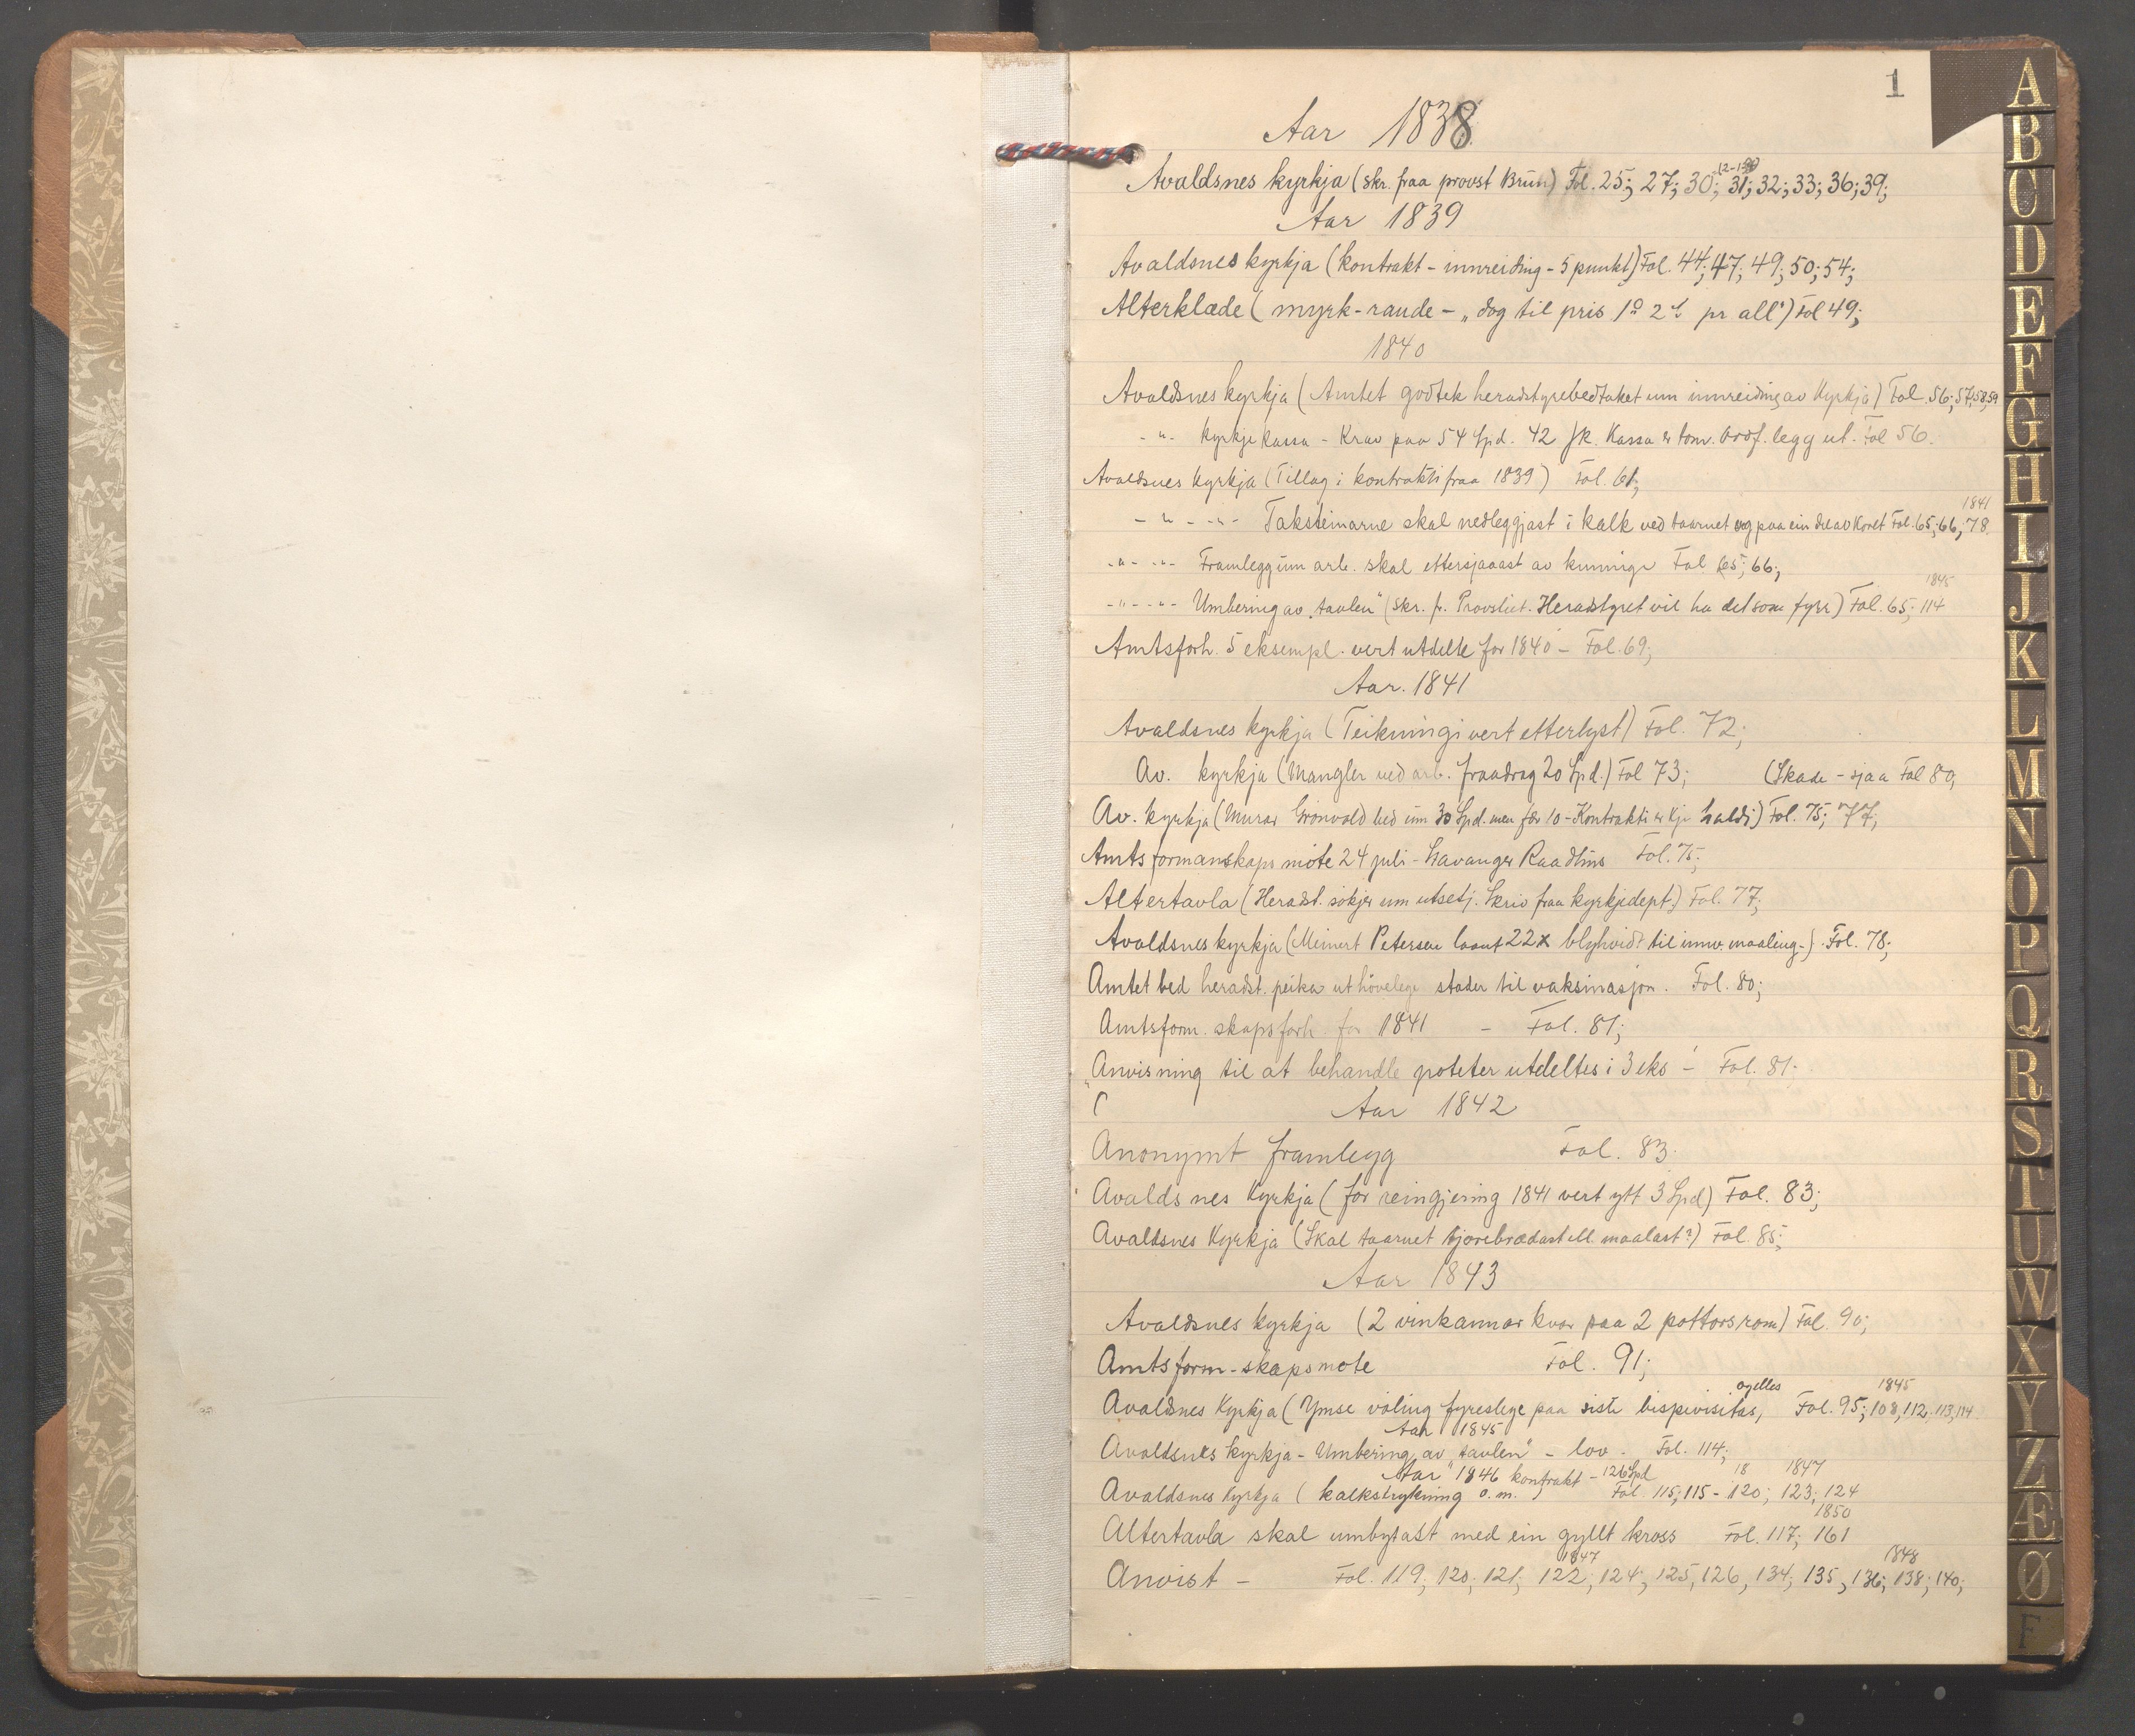 1
Aar 1838
Avaldsnes kyrkja (skr. fraa provst Brun) Fol. 25; 27; 30; 31; 32; 33; 36; 39;
Aar 1839
Avaldsnes kyrkja (kontrakt - innreiding - 5 punkt) Fol. 44; 47; 49; 50; 54;
Alterklæde (myrk-raude - „dog til pris pr all“) Fol 49;
1840
Avaldsnes kyrkja (Amtet godtek heradstyrebedtaket um innreiding av kyrkja) Fol. 56; 57; 58; 59
-"- kyrkjekassa - Krav paa 54 Spd. 42 sk. Kassa er tom. Ordf. legg ut. Fol 56.
Avaldsnes kyrkja (Tillag i kontrakti fraa 1839) Fol. 61;
1841
-"- -"- Taksteinarne skal nedleggjast i kalk ved taarnet og paa ein del av koret Fol. 65; 66; 78.
-"- -"- Framlegg um arb. skal ettersjaaast av kunnige Fol. 65; 66;
1845
-"- -"- Umbering av „tavlen“ (skr. fr. Provstiet. Heradstyret vil ha det som fyrr) Fol. 65; 114
Amtsforh. 5 eksempl. vert utdelte for 1840 - Fol. 69;
Aar. 1841
Avaldsnes kyrkja (Teikningi vert etterlyst) Fol. 72;
Av. kyrkja (Mangler ved arb. fraadrag 20 Spd.) Fol 73; (Skade - sjaa Fol 80;
Av. kyrkja (Murar Grönvold bed um 30 Spd. men fær 10 - Kontrakti er kje haldi) Fol. 75; 77;
Amtsformanskaps möte 24 juli - Stavanger Raadhus Fol. 75;
Altertavla (Heradst. sökjer um utsetj. Skriv fraa kyrkjedept.) Fol. 77;
Avaldsnes kyrkja (Meinert Petersen laant 22 blyhvidt til innv. maaling-). Fol. 78;
Amtet bed heradst. peika ut hövelege stader til vaksinasjon. Fol. 80;
Amtsform.skapsforh. for 1841 - Fol. 81;
„Anvisning til at behandle poteter utdeltes i 3 eks - Fol. 81;
Aar 1842
Anonymt framlegg Fol. 83.
Avaldsnes kyrkja (for reingjering 1841 vert ytt 3 Spd) Fol. 83;
Avaldsnes Kyrkja (Skal taarnet bjorebrædast ell. maalast?) Fol. 85;
Aar 1843
Avaldsnes kyrkja (2 vinkannor kvar paa 2 pottars rom) Fol. 90;
Amtsform-skapsmöte Fol. 91;
ogelles 1845
Avaldsnes Kyrkja (Ymse völing fyreslege paa siste bispevisitas, Fol. 95; 108, 112; 113, 114
Aar 1845
Avaldsnes kyrkja - Umbering av „tavlen“ - lov. Fol. 114;
Aar 1846 kontrakt - 126 Spd 18 1847
Avaldsnes kyrkja (kalkstrykning o.m.) Fol. 115; 115 - 120; 123; 124
1850
Altertavla skal umbytast med ein gyllt kross Fol. 117; 161
1847 1848
Anvist - Fol. 119; 120; 121; 122; 124; 125, 126, 134; 135, 136; 138; 140;
A
B
C
D
E
F
G
H
I
J
K
L
M
N
O
P
Q
R
S
T
U
W
X
Y
Z
Æ
Ø
F